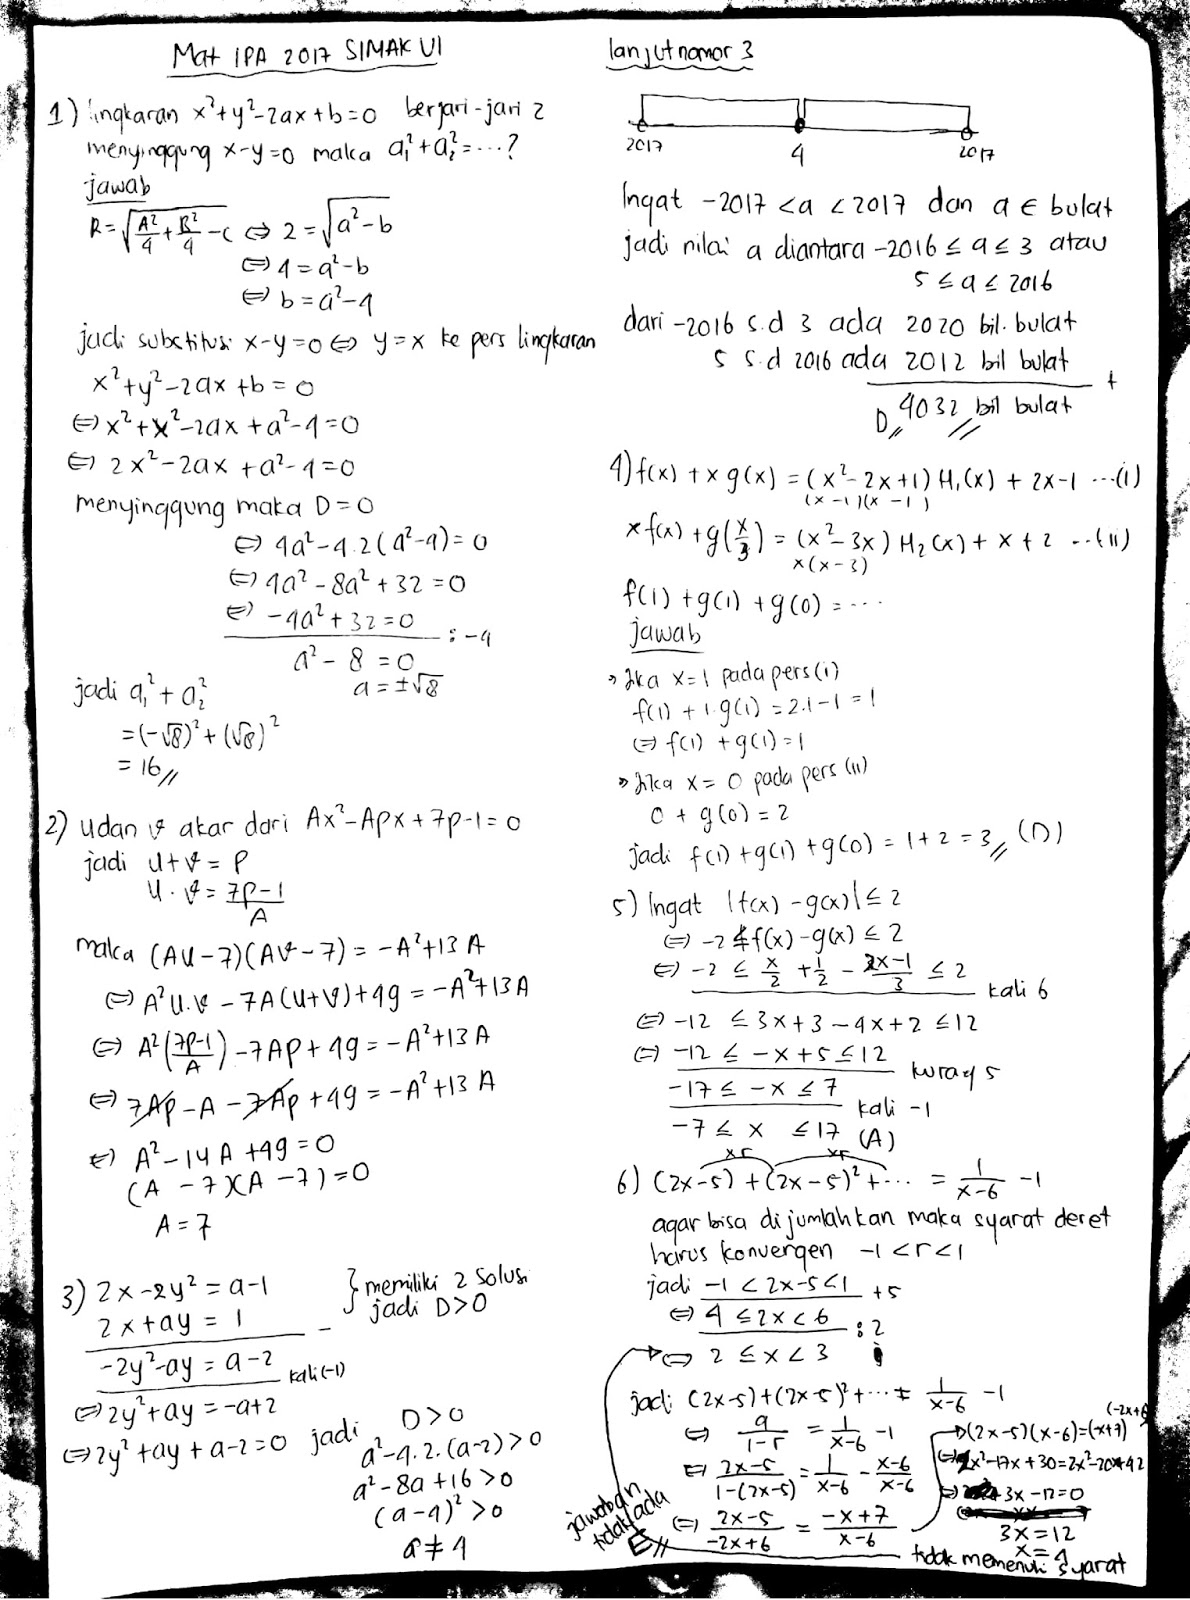 Mat IPA 2017 SIMAK UI
1) lingkaran x²+y²-2ax+b=0 berjari-jari 2
menyinggung x-y=0 maka a₁²+a₂²=...?
jawab
R=√(A²/4+B²/4-C) ⇔ 2=√(a²-b)
⇔ 4=a²-b
⇔ b=a²-4
jadi substitusi x-y=0 ⇔ y=x ke pers lingkaran
x²+y²-2ax+b=0
⇔ x²+x²-2ax+a²-4=0
⇔ 2x²-2ax+a²-4=0
menyinggung maka D=0
⇔ 4a²-4.2(a²-4)=0
⇔ 4a²-8a²+32=0
⇔ -4a²+32=0 :-4
a²-8=0
a=±√8
jadi a₁²+a₂²
=(-√8)²+(√8)²
=16//
2) u dan v akar dari Ax²-Apx+7p-1=0
jadi u+v=p
u.v=(7p-1)/A
maka (Au-7)(Av-7)=-A²+13A
⇔ A²u.v-7A(u+v)+49=-A²+13A
⇔ A²((7p-1)/A)-7Ap+49=-A²+13A
⇔ 7Ap-A-7Ap+49=-A²+13A
⇔ A²-14A+49=0
(A-7)(A-7)=0
A=7
3) 2x-2y²=a-1 } memiliki 2 solusi
2x+ay=1 - jadi D>0
-2y²-ay=a-2 kali(-1)
⇔ 2y²+ay=-a+2
⇔ 2y²+ay+a-2=0 jadi D>0
a²-4.2.(a-2)>0
a²-8a+16>0
(a-4)²>0
a≠4
lanjut nomor 3
2017 4 2017
Ingat -2017<a<2017 dan a∈bulat
jadi nilai a diantara -2016≤a≤3 atau
5≤a≤2016
dari -2016 s.d 3 ada 2020 bil.bulat
5 s.d 2016 ada 2012 bil bulat +
D// 4032 bil bulat
4) f(x)+xg(x)=(x²-2x+1)H₁(x)+2x-1 ...(i)
(x-1)(x-1)
xf(x)+g(x/3)=(x²-3x)H₂(x)+x+2 ...(ii)
x(x-3)
f(1)+g(1)+g(0)=...
jawab
» Jika x=1 pada pers(i)
f(1)+1.g(1)=2.1-1=1
⇔ f(1)+g(1)=1
» Jika x=0 pada pers (ii)
0+g(0)=2
jadi f(1)+g(1)+g(0)=1+2=3// (D)
5) Ingat |f(x)-g(x)|≤2
⇔ -2≤f(x)-g(x)≤2
⇔ -2≤x/2+1/2-(2x-1)/3≤2 kali 6
⇔ -12≤3x+3-4x+2≤12
⇔ -12≤-x+5≤12 kurang 5
-17≤-x≤7 kali -1
-7≤x≤17 (A)
xr xr
6) (2x-5)+(2x-5)²+...=1/(x-6)-1
agar bisa dijumlahkan maka syarat deret
harus konvergen -1<r<1
jadi -1<2x-5<1 +5
⇔ 4≤2x<6 :2
⇔ 2≤x<3
jadi (2x-5)+(2x-5)²+...=1/(x-6)-1
⇔ a/(1-r)=1/(x-6)-1
⇔ (2x-5)/(1-(2x-5))=1/(x-6)-(x-6)/(x-6)
⇔ (2x-5)/(-2x+6)=(-x+7)/(x-6)
(-2x+6)
(2x-5)(x-6)=(-x+7)
⇔ 2x²-17x+30=2x²-20x+42
⇔ 3x-12=0
3x=12
x=4
tidak memenuhi syarat
jawaban
tidak ada
E//